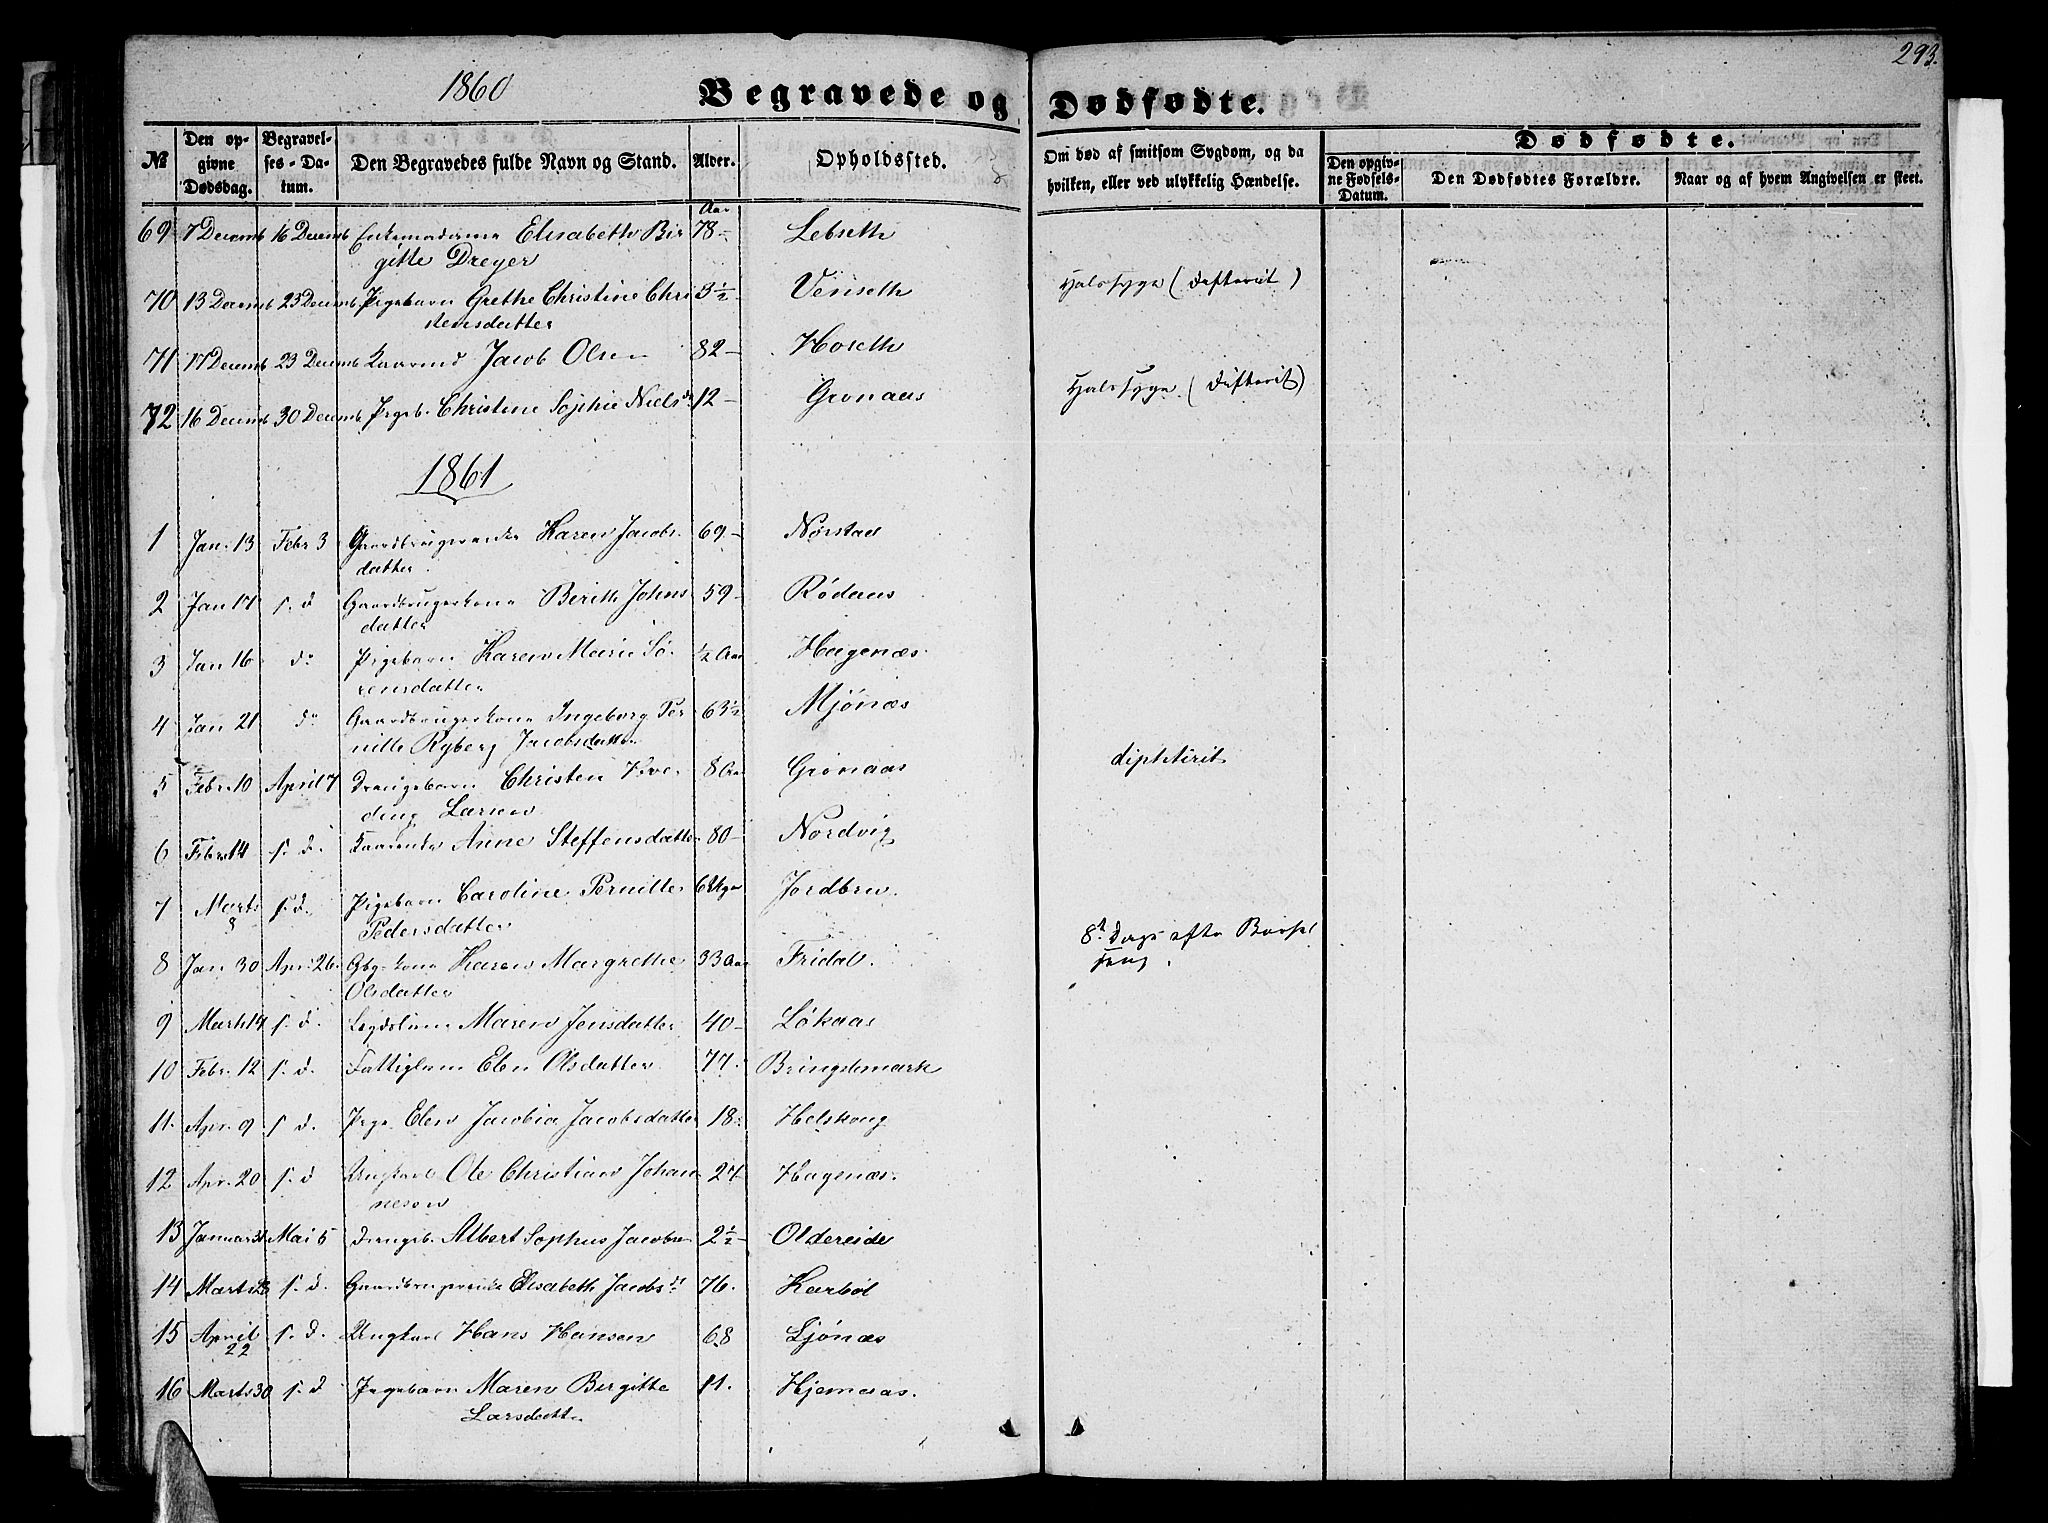 293.
1860
Begravede og Dødfødte.
№
Den opgivne Dødsdag.
Begravelses-Datum.
Den Begravedes fulde Navn og Stand.
Alder.
Opholdssted.
Om død af smitsom Sygdom, og da hvilken, eller ved ulykkelig Hændelse.
Dødfødte.
Den opgivne Fødsels-Datum.
Den Dødfødtes Forældre.
Naar og af hvem Angivelsen er skeet.
69 7 Decemb 16 Decemb Enkemadame Elisabeth Bir- Aar 78- Lebseth
gitte Dreyer
70 13 Decemb 23 Decemb Pigebarn Grethe Christine Chri 3½- Venseth Halssyge (Difterit)
stensdatter
71 17 Decemb 23 Decemb Kaarmd Jacob Olsen 82- Hoseth
72 16 Decemb 30 Decemb Pigeb. Christine Sophie Nielsd. 12- Grønaas Halssyge (Difterit)
1861
1 Jan. 13 Febr 3 Karen Jacobs- 69- Nørstad
datter
2 Jan 17 s. d Gaardbrugerkone Berith Johns 59- Rødaas
datter
3 Jan 16 do Pigebarn Karen Marie Sø- ½ Aar Hagenæs.
rensdatter
4 Jan 21 do Gaardbrugerkone Ingeborg Per- 63½ Mjønæs
nille Ryberg Jacobsdatter
5 Febr. 10 April 7 Drengebarn Christen Hve- 8 Aar Grønaas diphterit
ding Larsen
6 Febr 14 s. d. Anne Steffensdatter 80- Nordvig
7 Marts 8 s. d. Pigebarn Caroline Pernille 6 Uger Jordbru.
Pedersdatter
8 Jan 30 Apr. 26. Gbg.kone Karen Margrethe 33 Aar Fridal. 8 Dage efter Barsel
Olsdatter seng.
9 Marts 14 s. d. Lægdslem Maren Jensdatter 40- Løkaas
10 Febr. 12 s. d. Fattiglem Elen Olsdatter 77. Bringslimark
11. Apr. 9 s. d. Pige Elen Jacobia Jacobsdatter 18. Helskong
12 Apr. 20 s. d Ungkarl Ole Christian Johan- 24- Hagenæs.
nesen
13 Januar 31 Mai 5 Drengeb. Albert Sophus Jacobsen 2½- Oldereide
14 Marts 23 s. d. Elisabeth Jacobsdt 76. Karbøl
15 April 22 s. d. Ungkarl Hans Hansen 68 Ljønæs
16 Marts 30 s. d Pigebarn Maren Birgitte 11. Hjemaas.
Larsdatt.